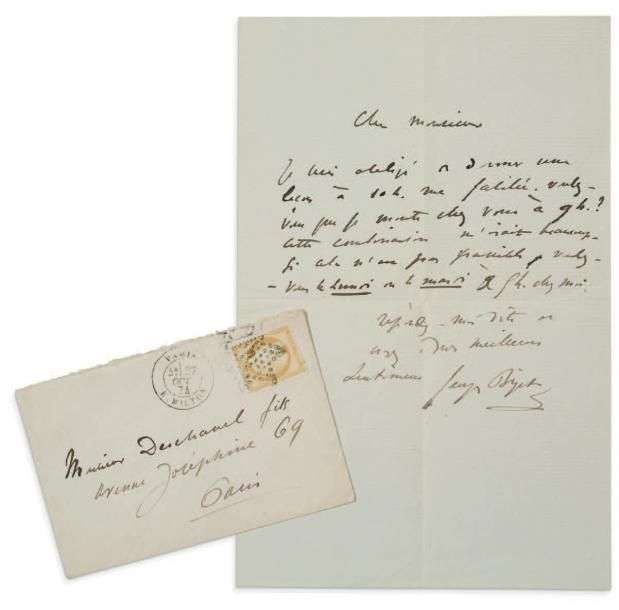 Cher monsieur
Je suis obligé de donner une
leçon à 10 h. voulez-
vous que je monte chez vous à 9h.?
cette combinaison m'irait beaucoup
si cela n'est pas possible, voulez-
-vous le lundi ou le mardi à 9h. chez moi.
répondez-moi vite et
croyez à mes meilleurs
sentiments Georges Bizet
PARIS
R. MILTON
Monsieur Deschanel fils
avenue Joséphine 69
Paris